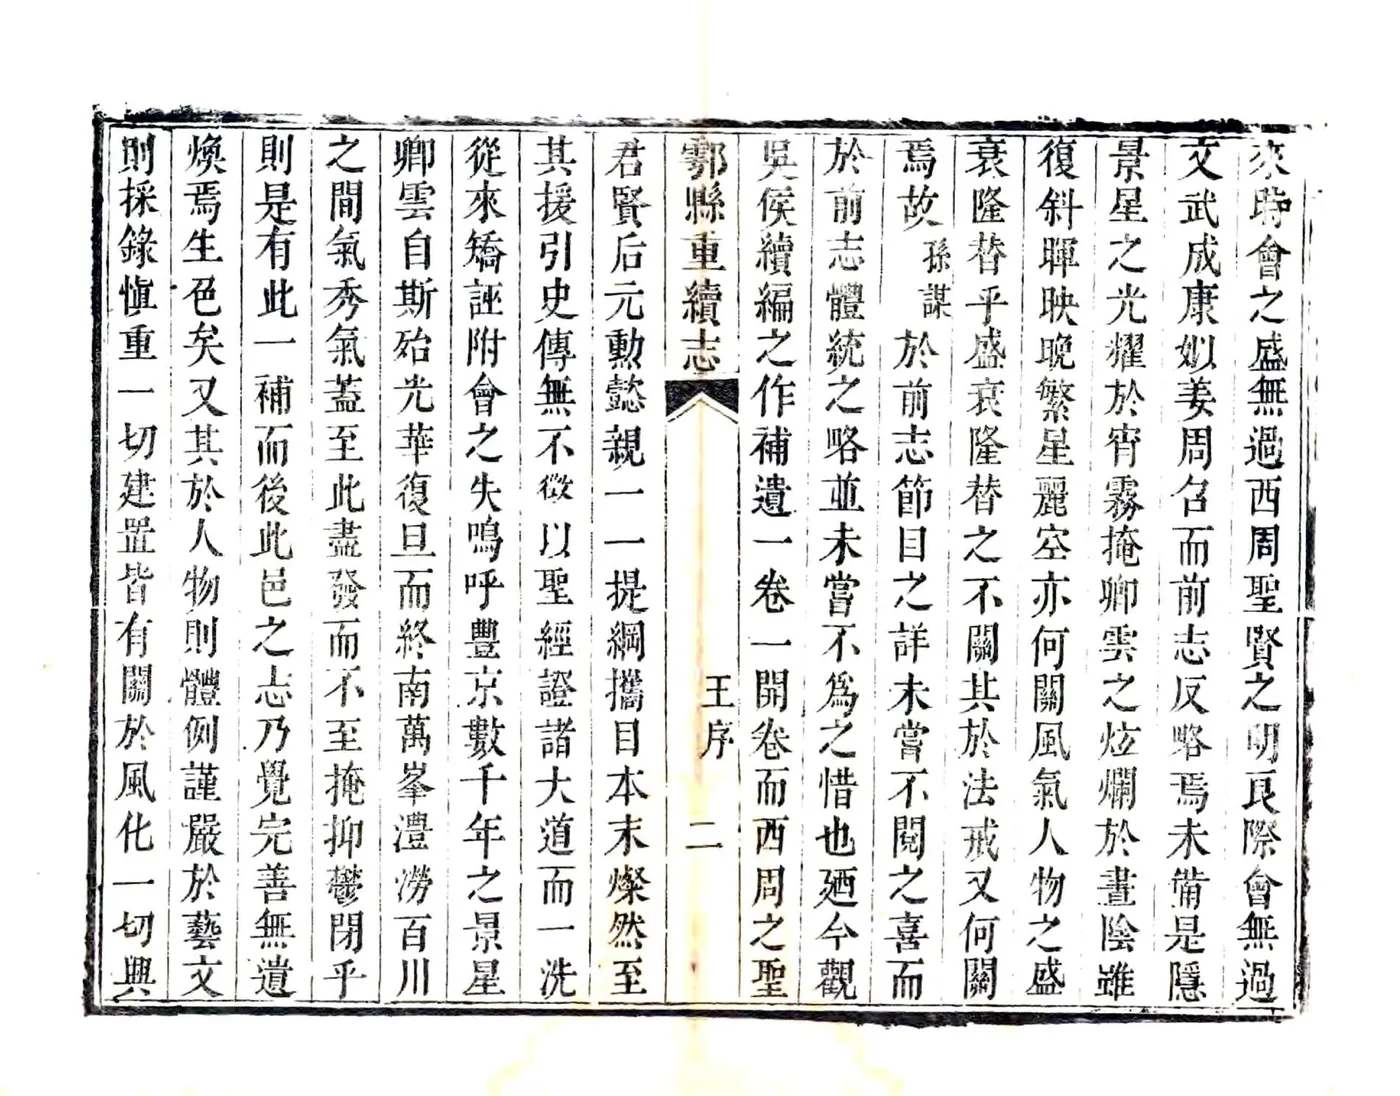 來時會之盛無過西周聖賢之明良際會無過
文武成康姒姜周召而前志反略焉未備是隱
景星之光耀於宵霧掩卿雲之炫爛於晝陰雖
復斜暉映晚繁星麗空亦何關風氣人物之盛
衰隆替乎盛衰隆替之不關其於法戒又何關
焉故孫謀於前志節目之詳未嘗不閱之喜而
於前志體統之略並未嘗不為之惜也廼今觀
吳侯續編之作補遺一卷一開卷而西周之聖
鄠縣重續志 王序 二
君賢后元勳懿親一一提綱攜目本末燦然至
其援引史傳無不徵以聖經證諸大道而一洗
從來矯誣附會之失嗚呼豐京數千年之景星
卿雲自斯殆光華復旦而終南萬峯澧澇百川
之間氣秀氣蓋至此盡發而不至掩抑鬱閉乎
則是有此一補而後此邑之志乃覺完善無遺
煥焉生色矣又其於人物則體例謹嚴於藝文
則採錄愼重一切建置皆有關於風化一切興